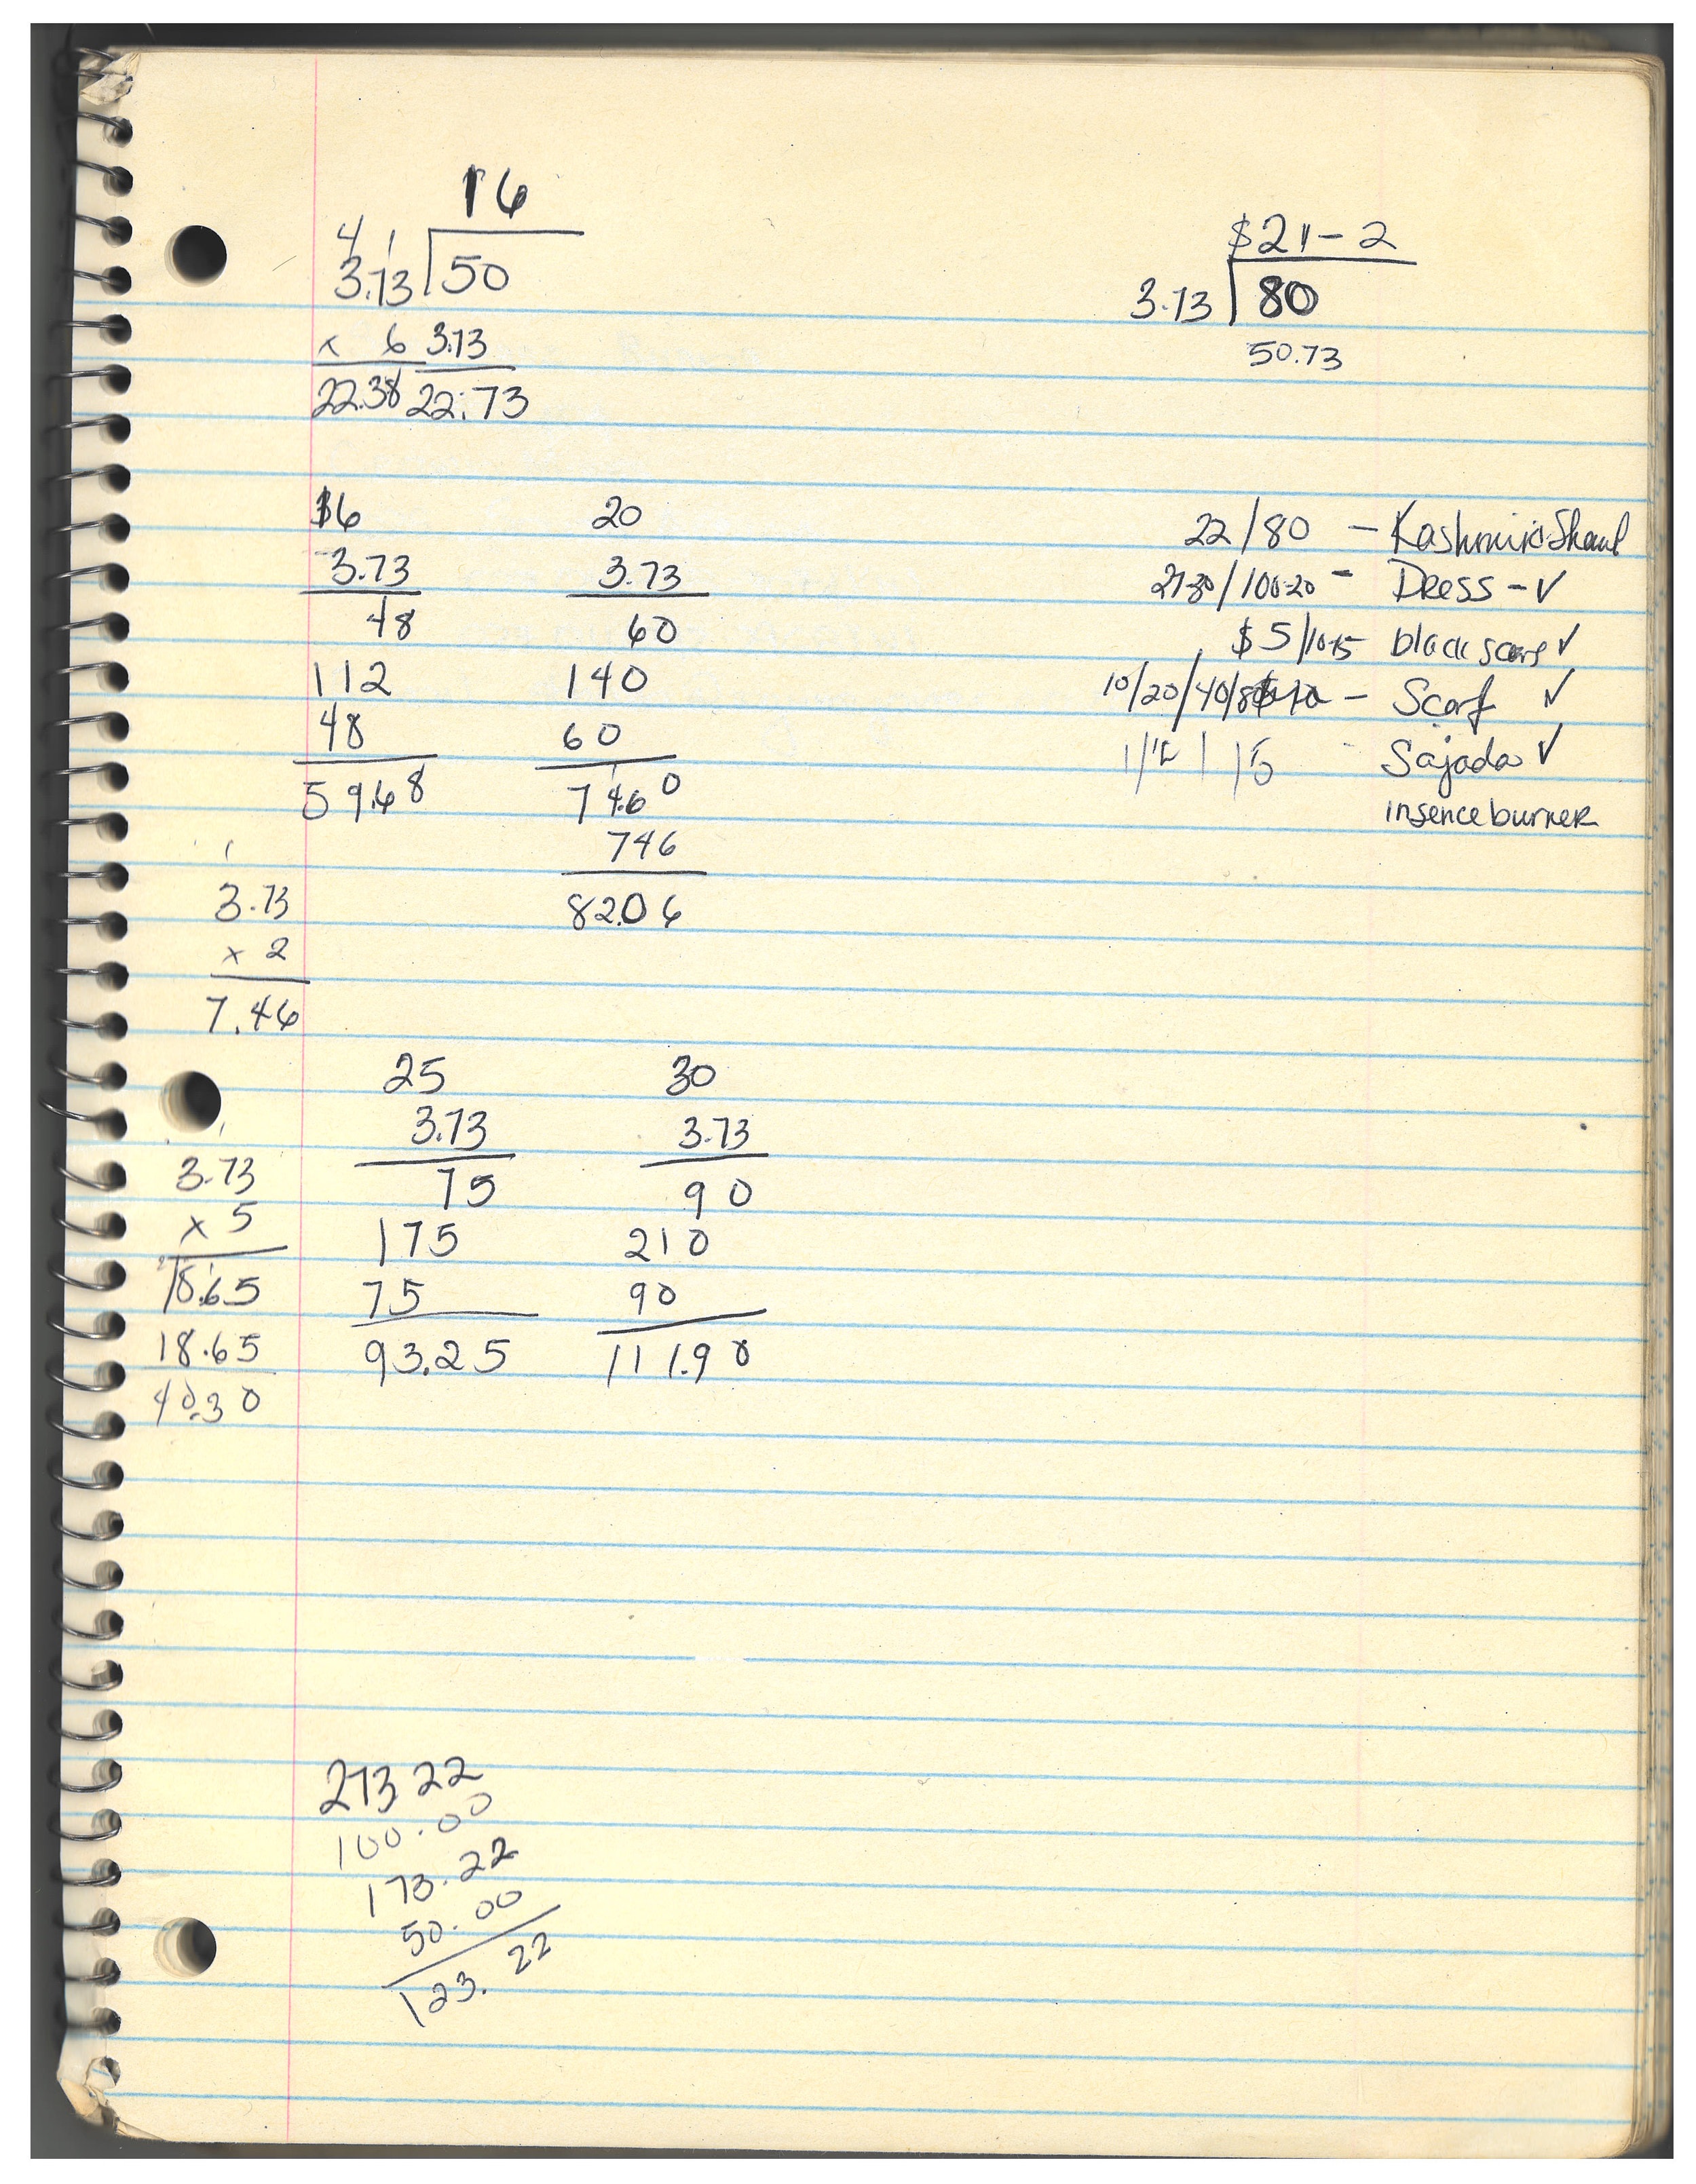 16
4 1
3.73 50
x 6 3.73
22.38 22.73
$21-2
3.73 80
50.73
$6
3.73
48
112
48
59.68
20
3.73
60
140
60
74.60
746
82.06
22/80 - Kashmiri Shawl
27-30/100-20 - Dress - ✓
$5/10-15 black scarf ✓
10/20/40/ - Scarf ✓
Sajada ✓
insence burner
1
3.73
x 2
7.46
3.73
x 5
18.65
18.65
40.30
25
3.73
75
175
75
93.25
30
3.73
90
210
90
111.90
273 22
100.00
173.22
50.00
123.22